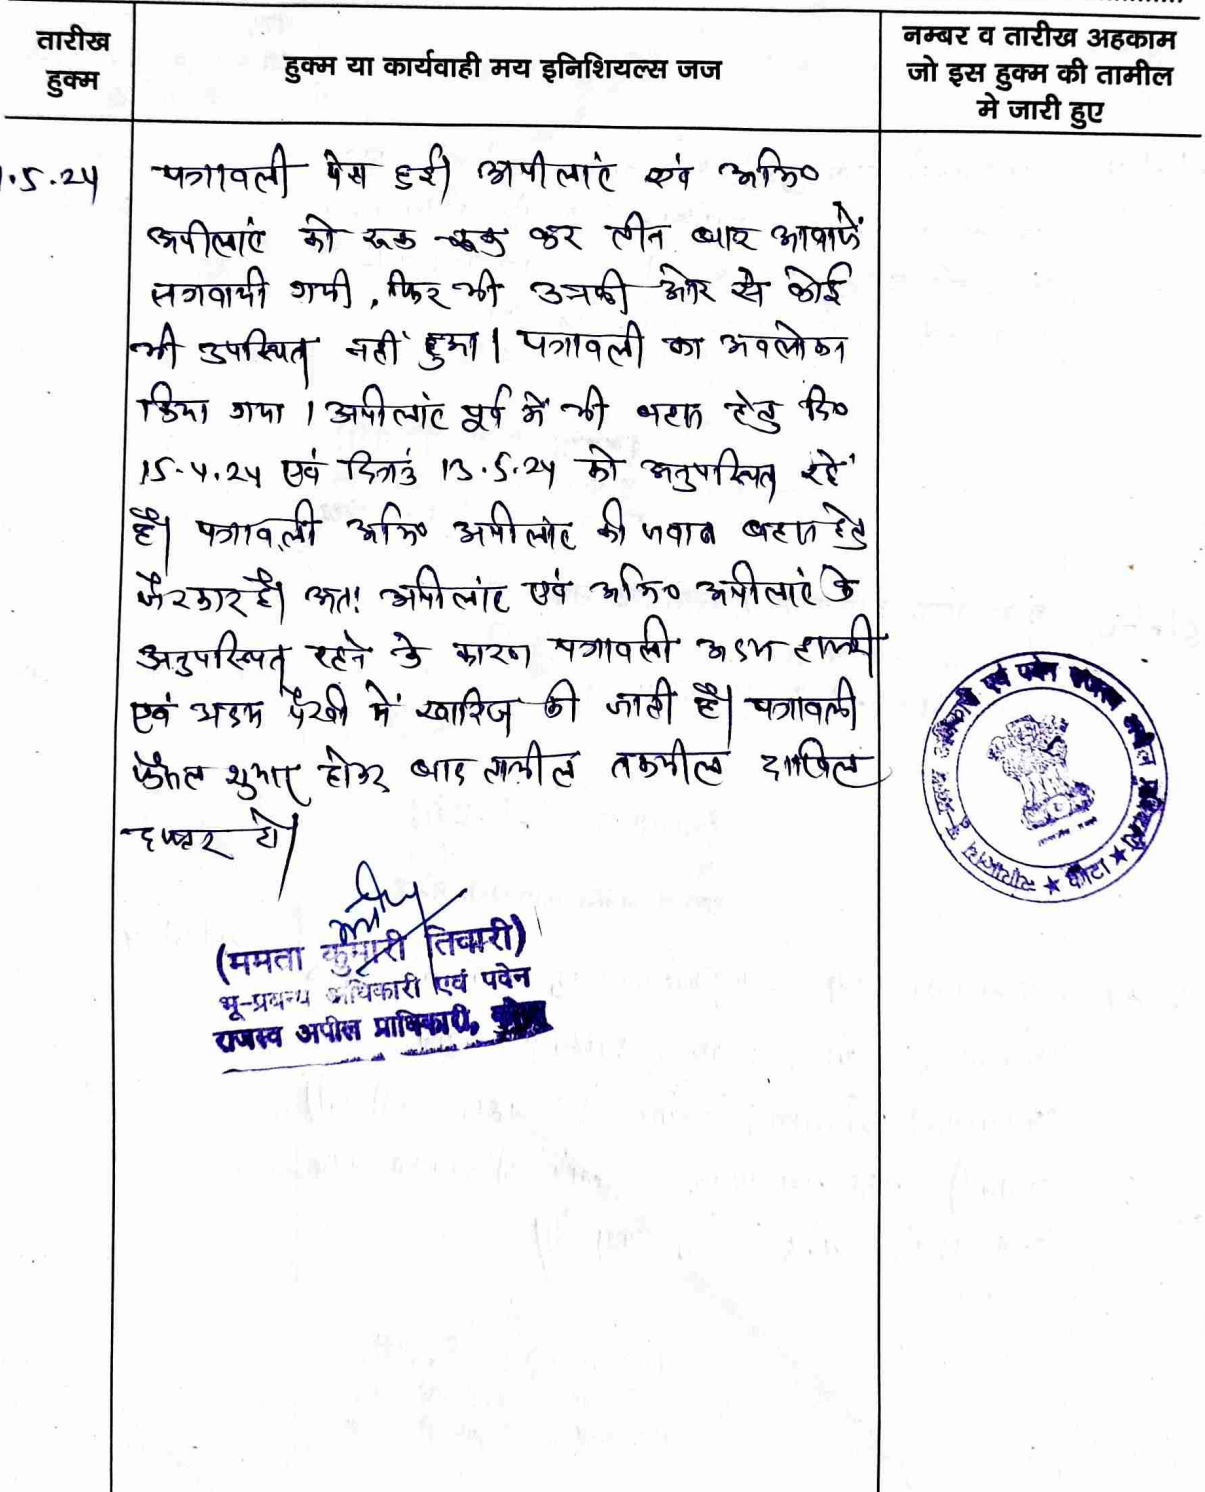 तारीख
हुक्म
हुक्म या कार्यवाही मय इनिशियल्स जज
नम्बर व तारीख अहकाम
जो इस हुक्म की तामील
मे जारी हुए
.5.24
पत्रावली पेश हुई। अपीलांट एवं अभि०
अपीलांट को रूक रूक कर तीन बार आवाजें
लगवायी गयी, फिर भी उनकी ओर से कोई
भी उपस्थित नहीं हुआ। पत्रावली का अवलोकन
किया गया। अपीलांट पूर्व में भी बहस हेतु दि०
15.4.24 एवं दिनांक 13.5.24 को अनुपस्थित रहे
है। पत्रावली अभि० अपीलांट की जवाब बहस हेतु
है। अतः अपीलांट एवं अभि० अपीलांट के
अनुपस्थित रहने के कारण पत्रावली अदम हाजरी
एवं अदम पैरवी में खारिज की जाती है। पत्रावली
फैसल शुमार होकर बाद तामील तकमील दाखिल
दफ्तर हो।
(ममता कुमारी तिवारी)
भू-प्रबन्ध अधिकारी एवं पदेन
राजस्व अपील प्राधिकारी,
न्यायालय भू-प्रबन्ध अधिकारी एवं पदेन राजस्व अपील प्राधिकारी ★ कोटा ★